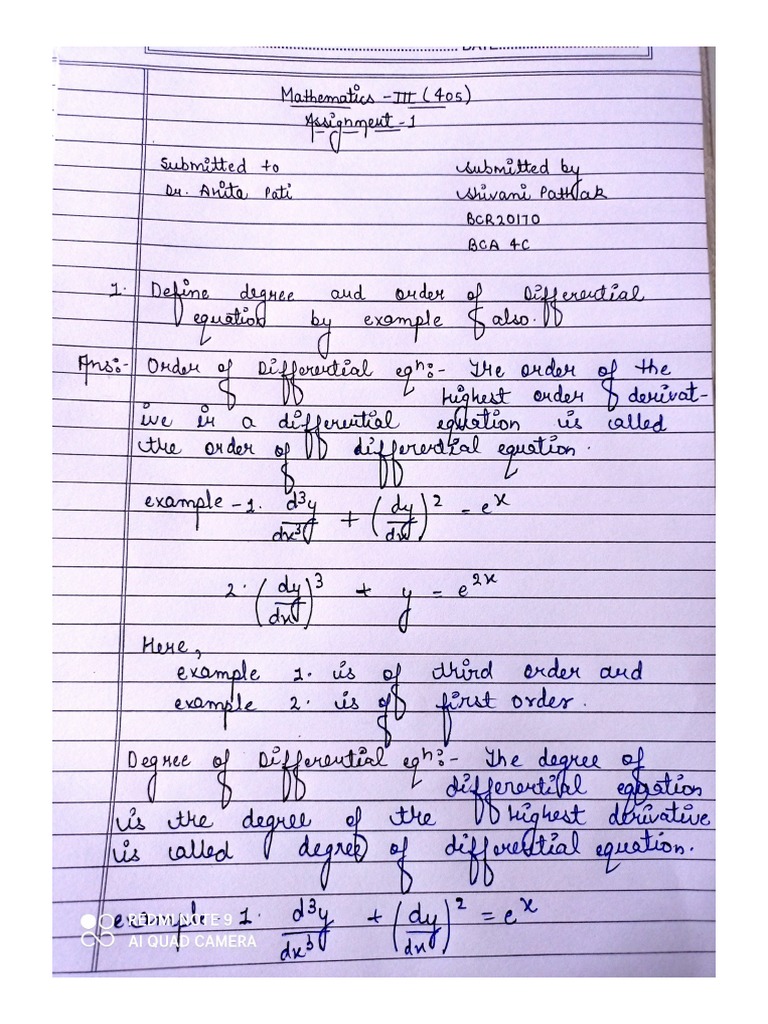 DATE
Mathematics - III (405)
Assignment - 1
Submitted to Submitted by
Dr. Anita Pati Shivani Pathak
BCR20170
BCA 4C
1. Define degree and order of Differential
equation by example also.
Ans:- Order of Differential eqⁿ:- The order of the
highest order derivat-
ive in a differential equation is called
the order of differential equation.
example - 1. d³y/dx³ + (dy/dx)² = eˣ
2. (dy/dx)³ + y = e²ˣ
Here,
example 1. is of third order and
example 2. is of first order.
Degree of Differential eqⁿ:- The degree of
differential equation
is the degree of the highest derivative
is called degree of differential equation.
example 1. d³y/dx³ + (dy/dx)² = eˣ
REDMI NOTE 9
AI QUAD CAMERA